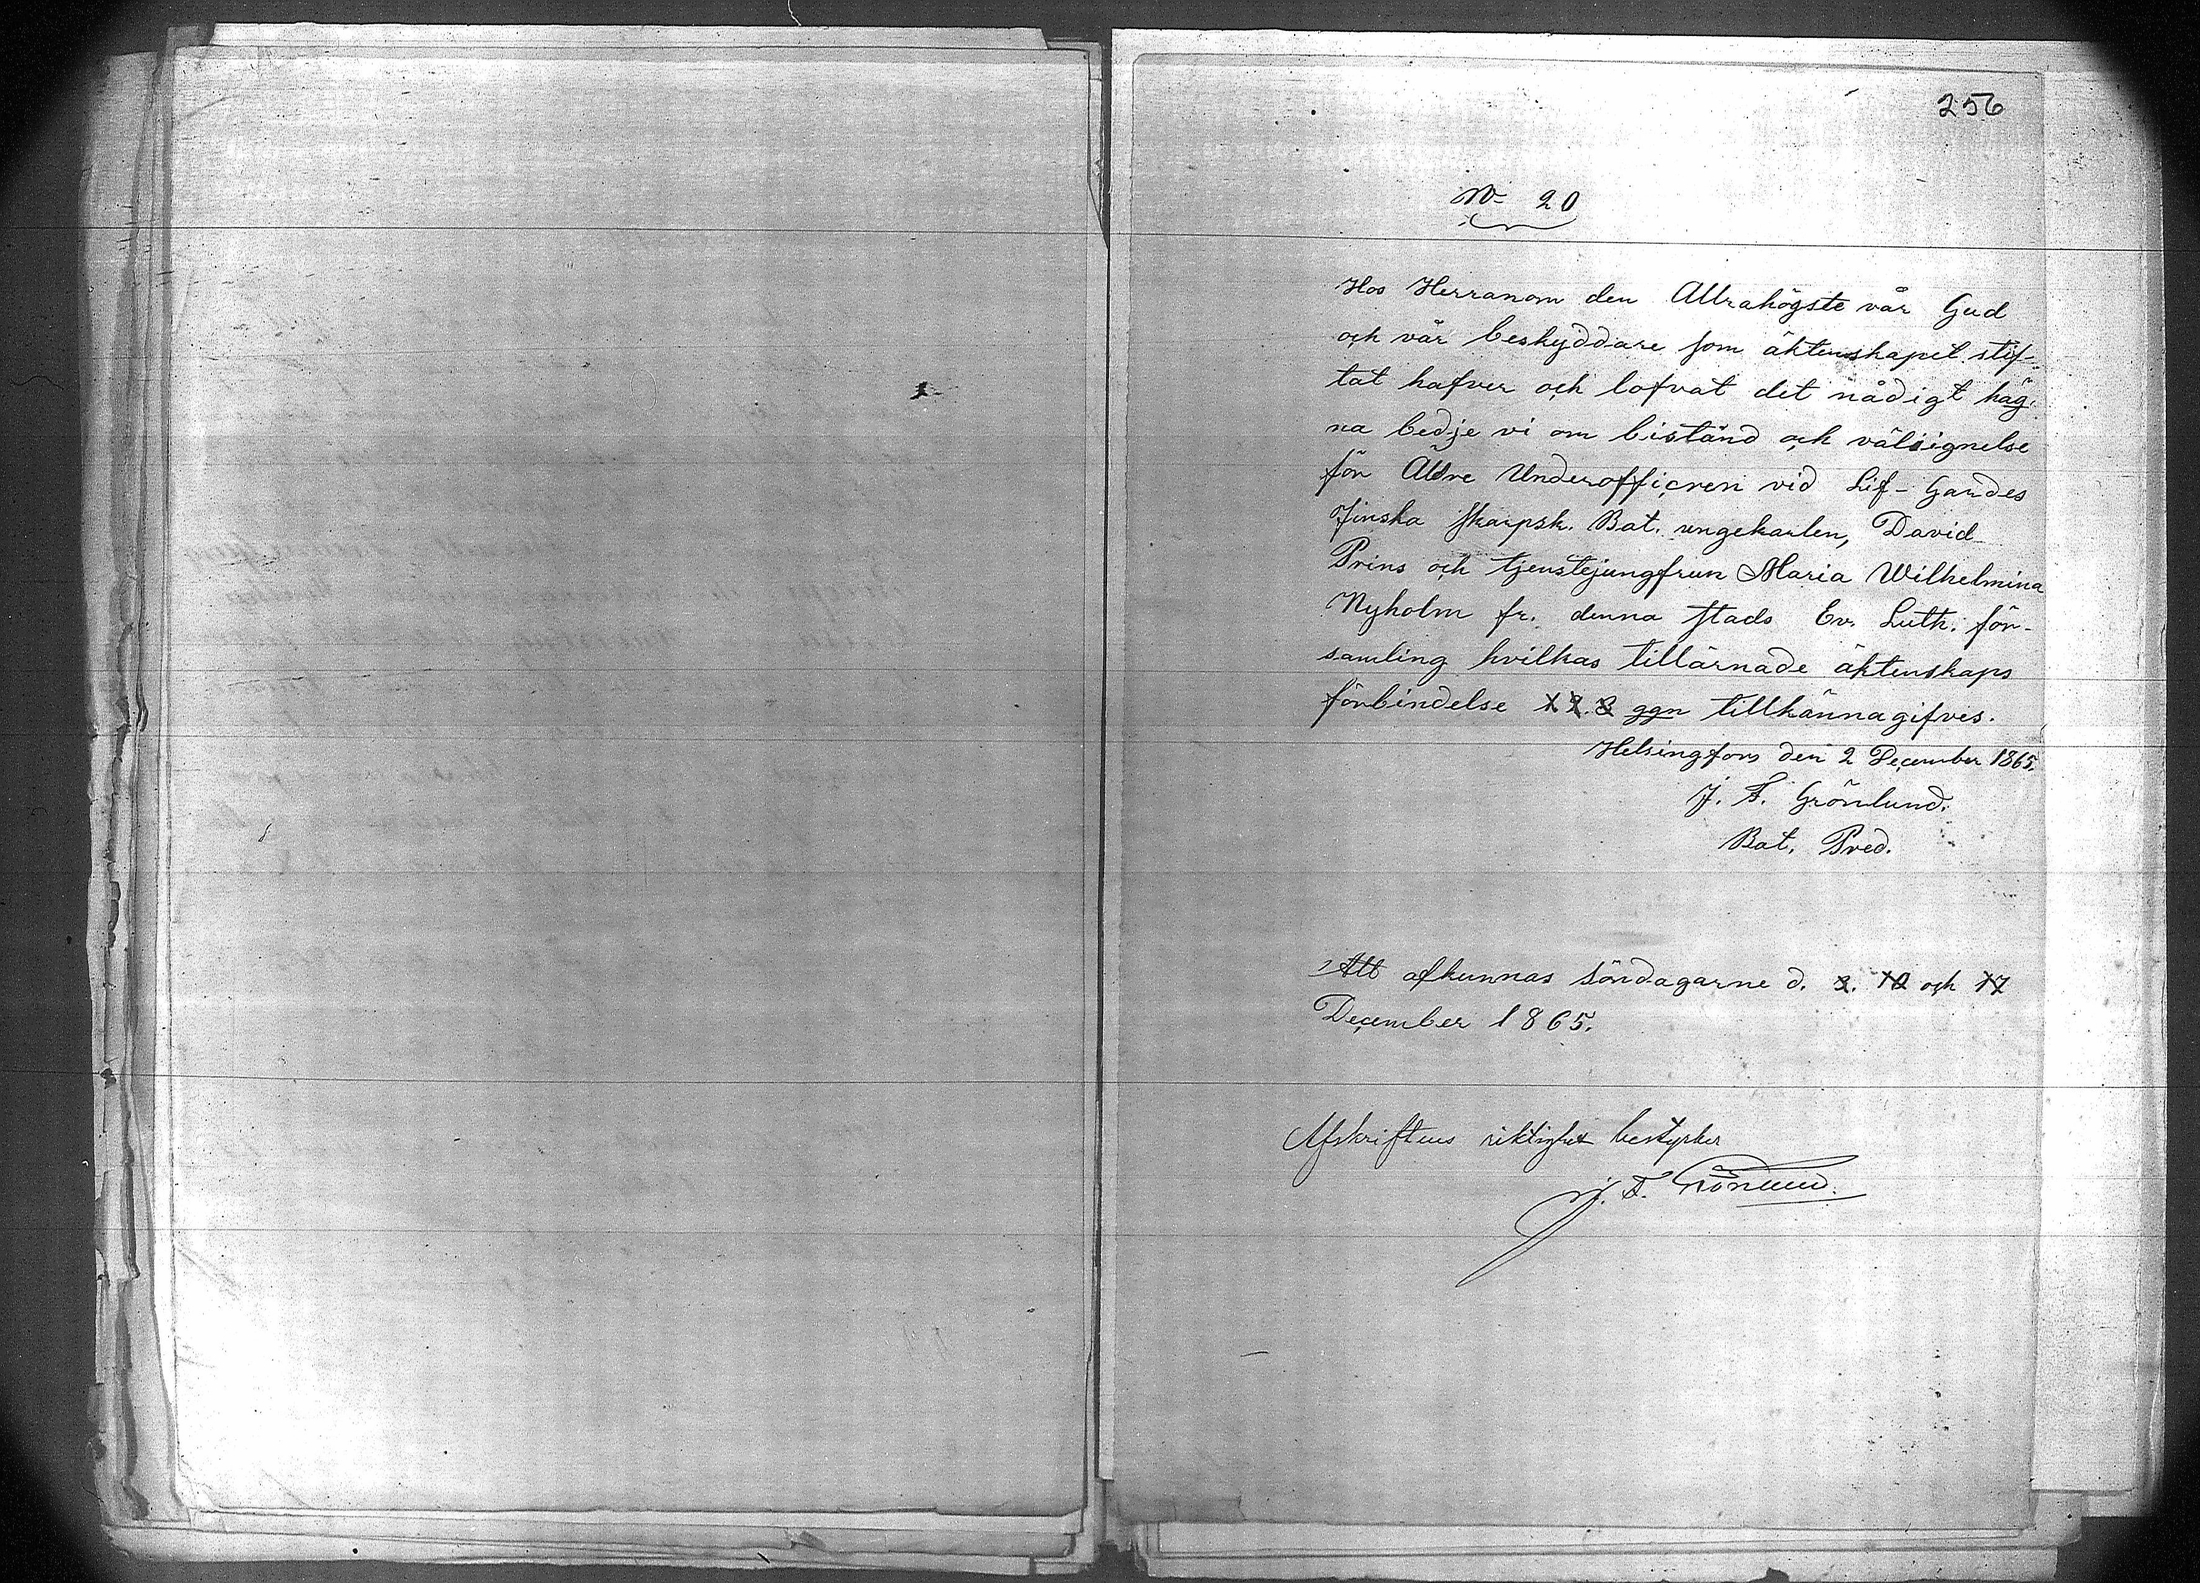 256
No 20
Hos Herranom den Allrahögste vår Gud
och vår beskyddare som äktenskapet stif-
tat hafver och lofvat det nådigt häg-
na bedje vi om bistånd och välsignelse
för Äldre Underofficren vid Lif-Gardes
Finska skarpsk. Bat. ungekarlen, David
Prins och tjenstejungfrun Maria Wilhelmina
Nyholm fr. denna stads Ev. Luth. för-
samling hvilkas tillärnade äktenskaps
förbindelse 1 2. 3 ggn tillkännagifves.
Helsingfors den 2 December 1865.
J. F. Grönlund.
Bat. Pred.
Att afkunnas söndagarne d. 3. 10 och 17
December 1865.
Afskriftens riktighet bestyrker
J. F. Grönlund.